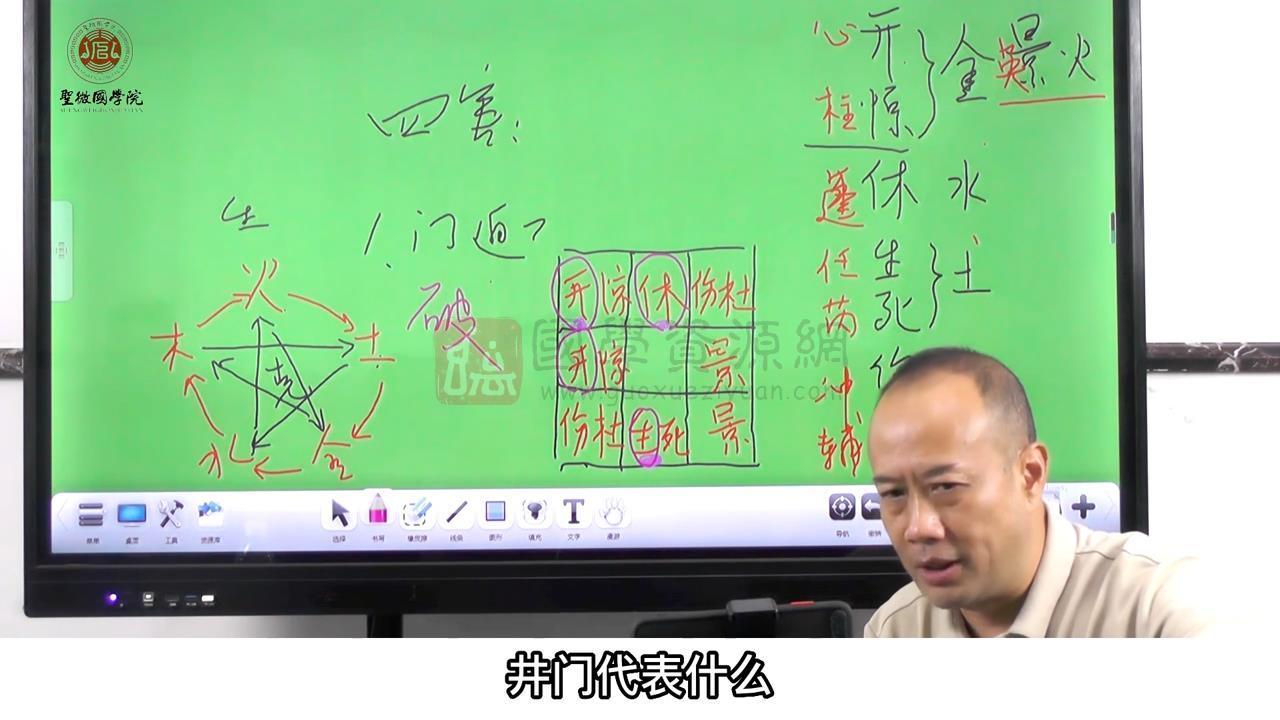 聖微國學院
四害:
生
1.门迫
破
火
木 土
克
水 金
开惊 休 伤杜
开惊 景
伤杜 生死 景
心 开
柱 惊
金 英 景 火
蓬 休 水
任 生
芮 死
土
冲
辅
國學資源網
www.guoxueziyuan.com
菜单 桌面 工具 资源库 选择 书写 橡皮擦 线条 图形 填充 文字 漫游 导航 撤销
井门代表什么